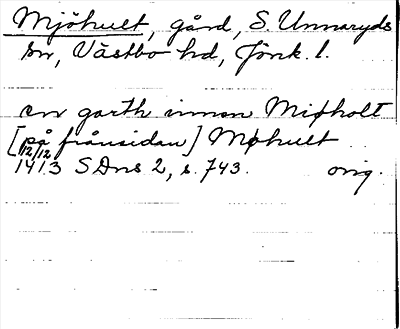 Mjöhult, gård, S. Unnaryds
sn, Västbo hd, Jönk. l.
en garth innan Miøholt
[på frånsidan] Møhult
12/12 1413 SDns 2, s. 743. orig.